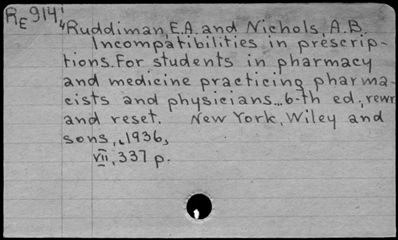 RE914
Ruddiman, E.A. and Nichols, A.B.
Incompatibilities in prescrip-
tions. For students in pharmacy
and medicine practicing pharma-
cists and physicians... 6-th ed., rewr
and reset. New York, Wiley and
sons, 1936,
VII, 337 p.